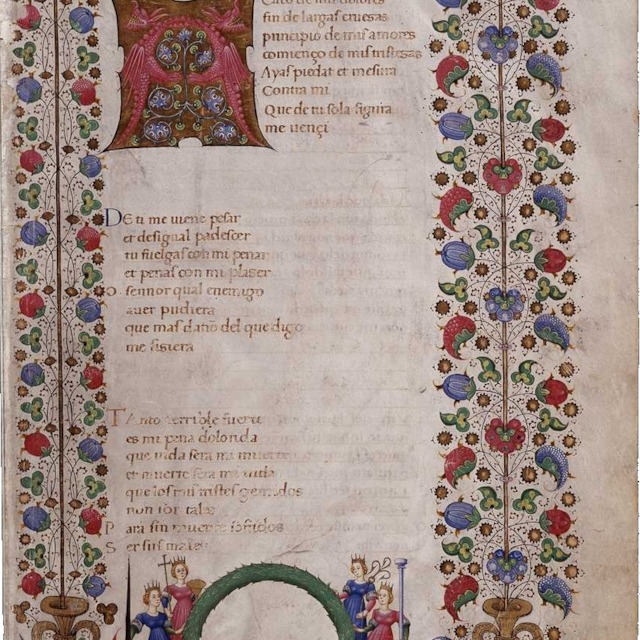 fin de largas cruesas
principio de mis amores
començo de mis tristezas
A yas piedat et mesura
Contra mi
Que de tu sola figura
me vençi
DE ti me uiene pesar
et desigual padesçer
tu fuelgas con mi penar
et penas con mi plaser
O sennor qual enemigo
auer pudiera
que mas daño del que digo
me fisiera
Tanto terrible fuerte
es mi pena dolorida
que vida sera mi muerte
et muerte sera mi uida
que los mis tristes gemidos
non son tales
Para sin muerte sofridos
Ser sus males